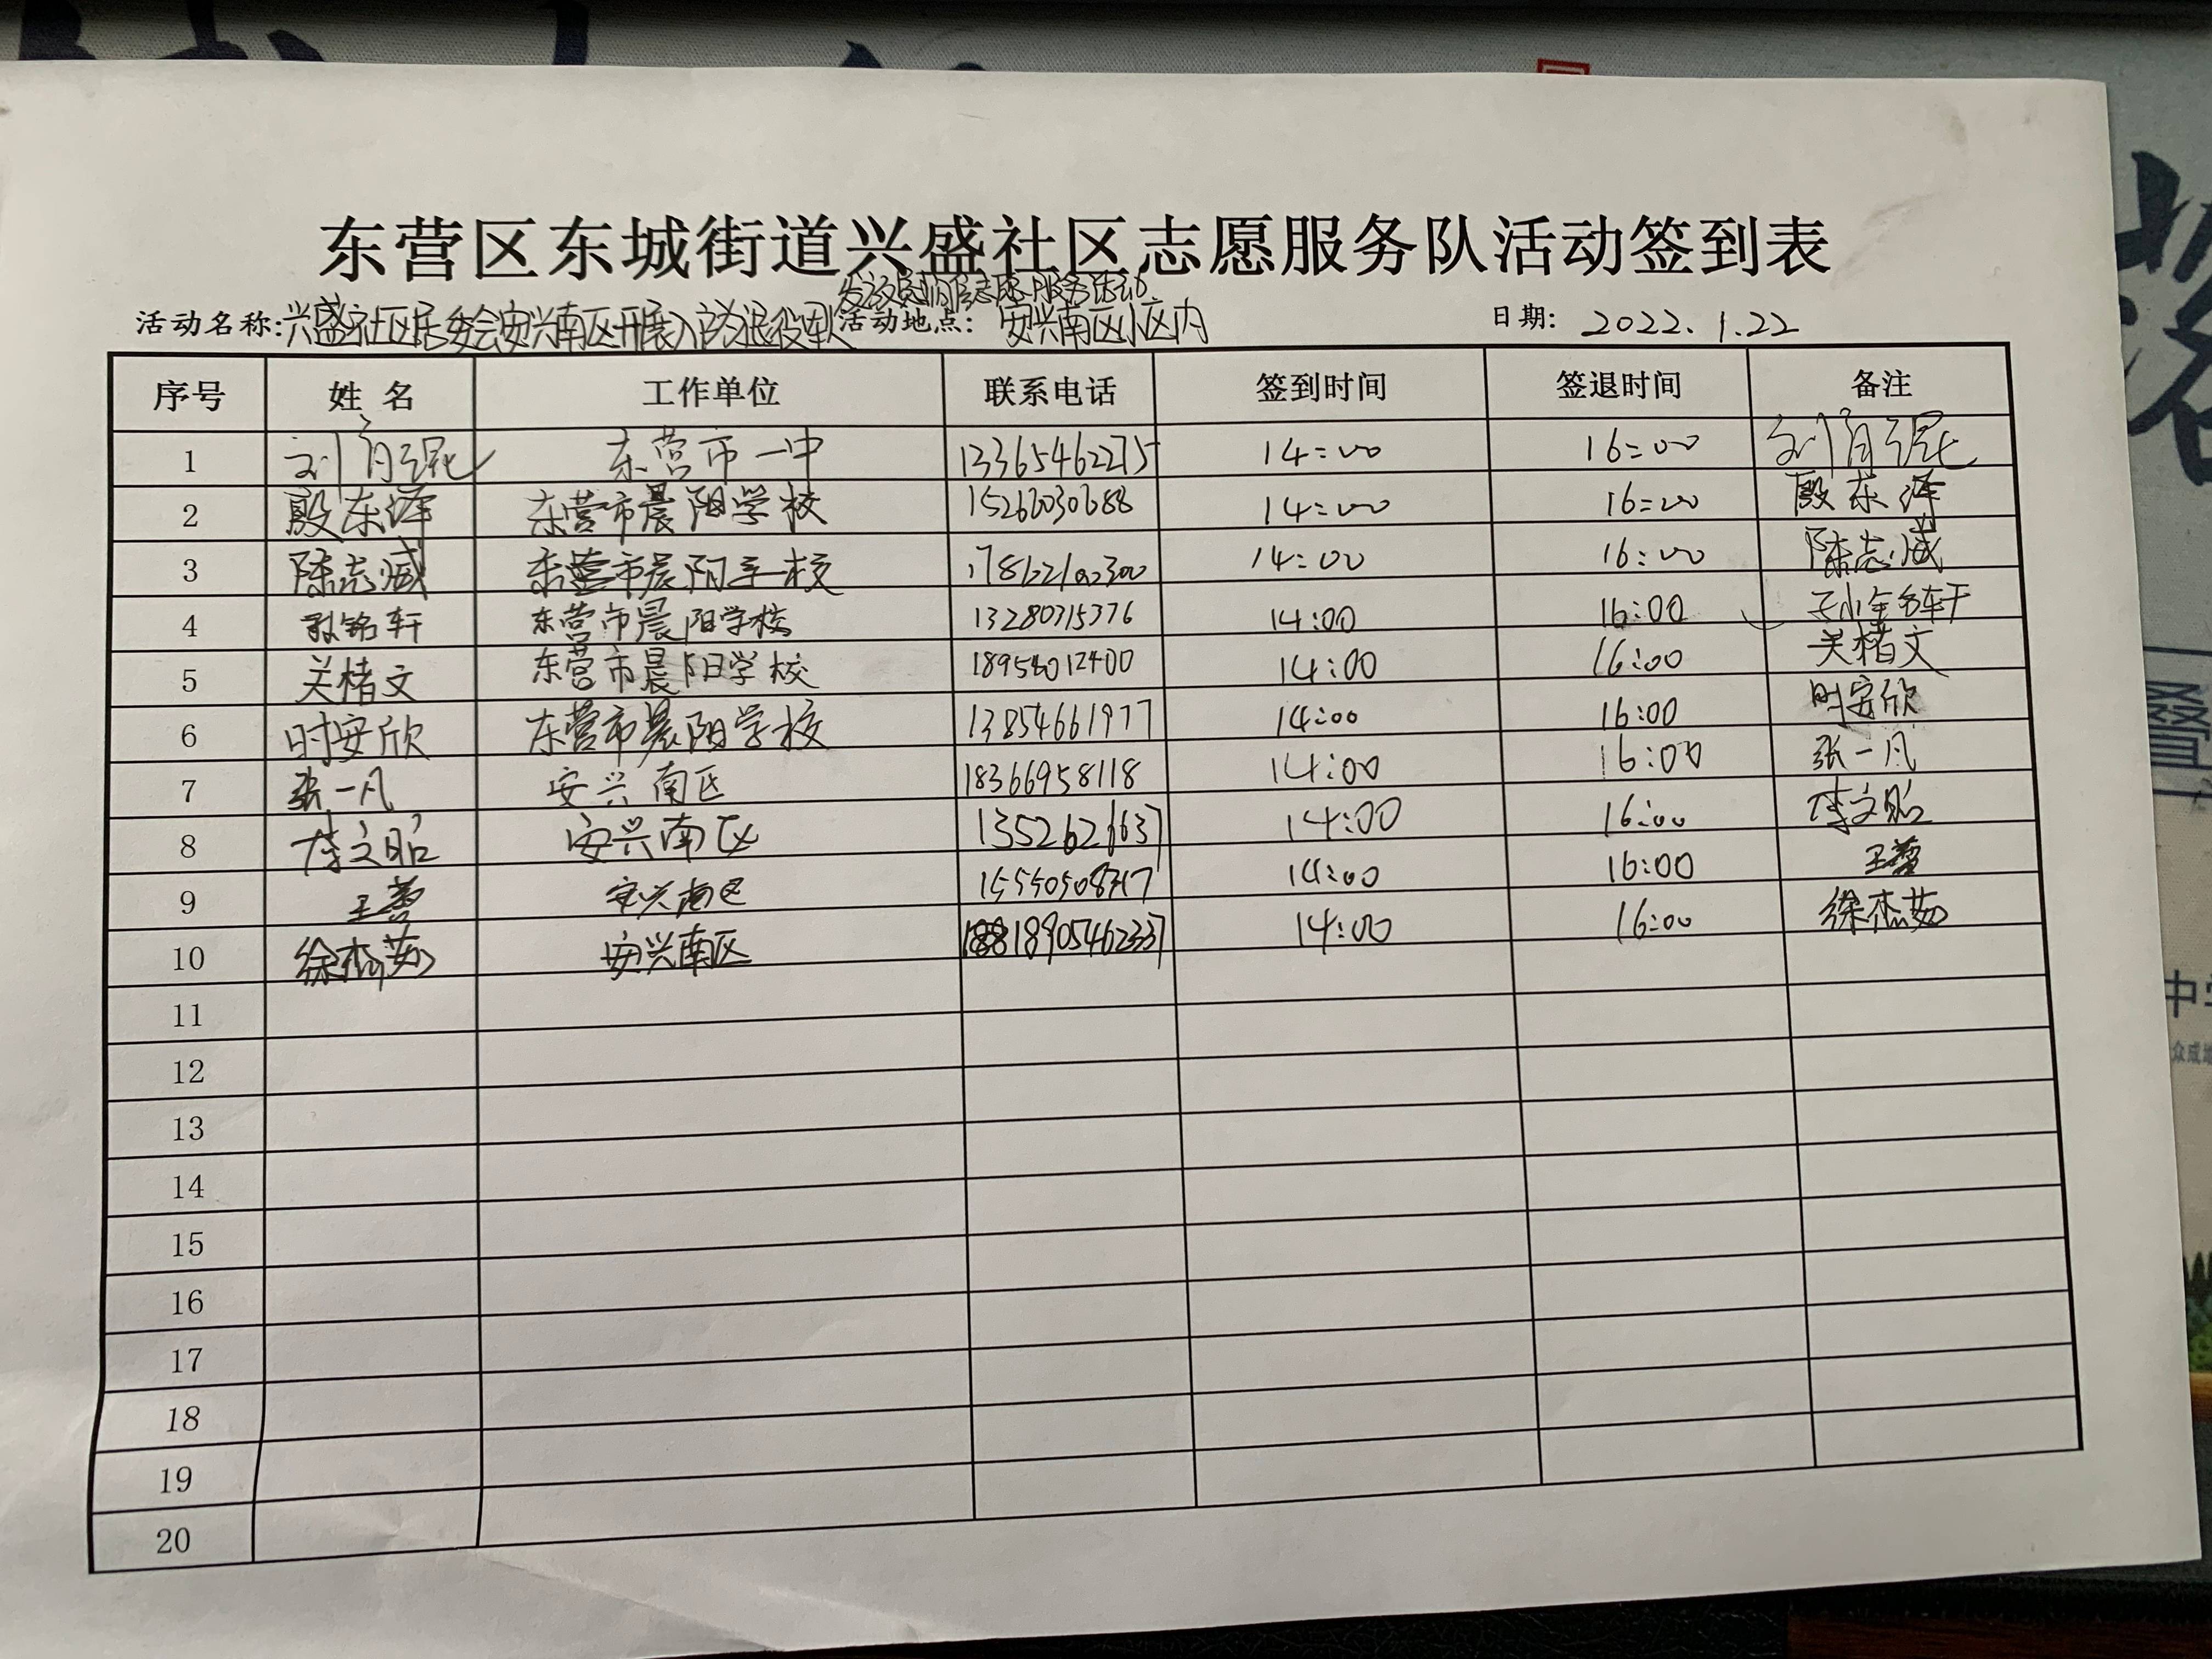 东营区东城街道兴盛社区志愿服务队活动签到表
志愿服务活动
活动名称:兴盛社区居委会安兴南区开展入户为退役军人 活动地点: 安兴南区小区内 日期: 2022.1.22
序号 姓名 工作单位 联系电话 签到时间 签退时间 备注
1 东营市一中 13365462275 14:00 16:00
2 殷东泽 东营市晨阳学校 15266030688 14:00 16:00 殷东泽
3 陈志威 东营市晨阳学校 14:00 16:00 陈志威
4 孙铭轩 东营市晨阳学校 13280315376 14:00 16:00 孙铭轩
5 关楮文 东营市晨阳学校 18954012400 14:00 16:00 关楮文
6 时安欣 东营市晨阳学校 13854661977 14:00 16:00 时安欣
7 张一凡 安兴南区 18366958118 14:00 16:00 张一凡
8 李文昭 安兴南区 14:00 16:00 李文昭
9 王蕾 安兴南区 14:00 16:00 王蕾
10 徐杰茹 安兴南区 18905462337 14:00 16:00 徐杰茹
11
12
13
14
15
16
17
18
19
20